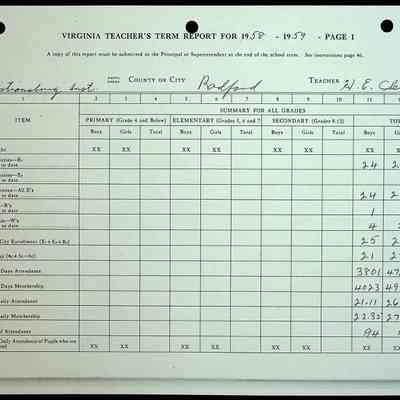 VIRGINIA TEACHER'S TERM REPORT FOR 1958 - 1959 - PAGE 1
A copy of this report must be submitted to the Principal or Superintendent at the end of the school term. See instructions page 46.
Inst. COUNTY OR CITY Radford TEACHER H. E.
1 2 3 4 5 6 7 8 9 10 11
SUMMARY FOR ALL GRADES
ITEM PRIMARY (Grade 4 and Below) ELEMENTARY (Grades 5, 6 and 7) SECONDARY (Grades 8-12) TO
Boys Girls Total Boys Girls Total Boys Girls Total Boys G
XX XX XX XX XX XX XX
to date 24 2
to date
to date 24 2
R's
to date 1
W's
to date 4
City Enrollment (E1+E2+R2) 25 2
21 2
Days Attendance 3801 47
Days Membership 4023 49
Daily Attendance 21.11 26
Daily Membership 22.35 27
of Attendance 94
Daily Attendance of Pupils who are
XX XX XX XX XX XX XX